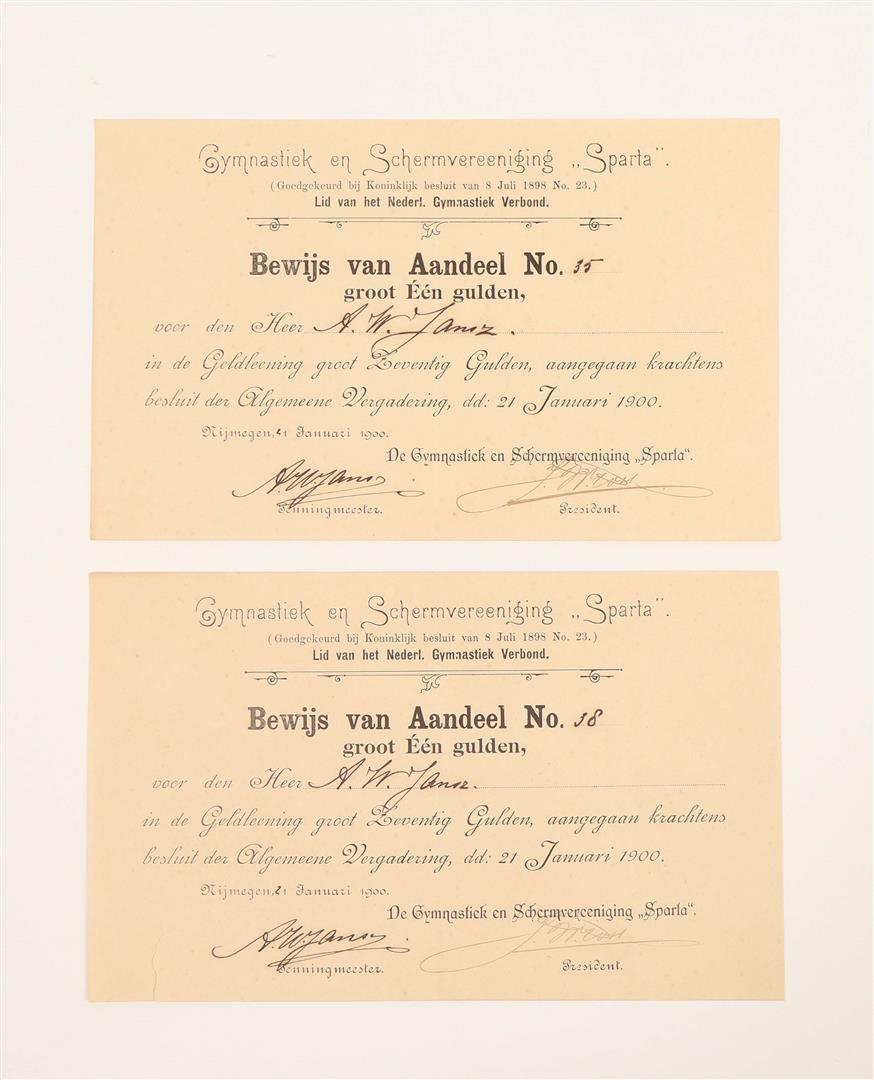 Gymnastiek en Schermvereeniging „Sparta”.
(Goedgekeurd bij Koninklijk besluit van 8 Juli 1898 No. 23.)
Lid van het Nederl. Gymnastiek Verbond.
Bewijs van Aandeel No. 35
groot Één gulden,
voor den Heer A. W. Jansz.
in de Geldleening groot Zeventig Gulden, aangegaan krachtens
besluit der Algemeene Vergadering, dd: 21 Januari 1900.
Nijmegen, 21 Januari 1900.
De Gymnastiek en Schermvereeniging „Sparta”.
A. W. Jansz
Penningmeester. President.
Gymnastiek en Schermvereeniging „Sparta”.
(Goedgekeurd bij Koninklijk besluit van 8 Juli 1898 No. 23.)
Lid van het Nederl. Gymnastiek Verbond.
Bewijs van Aandeel No. 38
groot Één gulden,
voor den Heer A. W. Jansz.
in de Geldleening groot Zeventig Gulden, aangegaan krachtens
besluit der Algemeene Vergadering, dd: 21 Januari 1900.
Nijmegen, 21 Januari 1900.
De Gymnastiek en Schermvereeniging „Sparta”.
A. W. Jansz
Penningmeester. President.